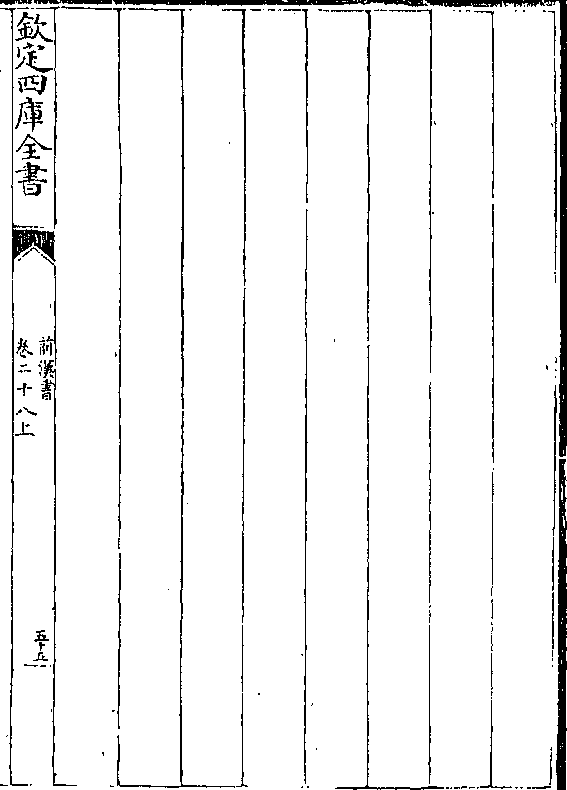 欽定四庫全書
前漢書
卷二十八上
五十五